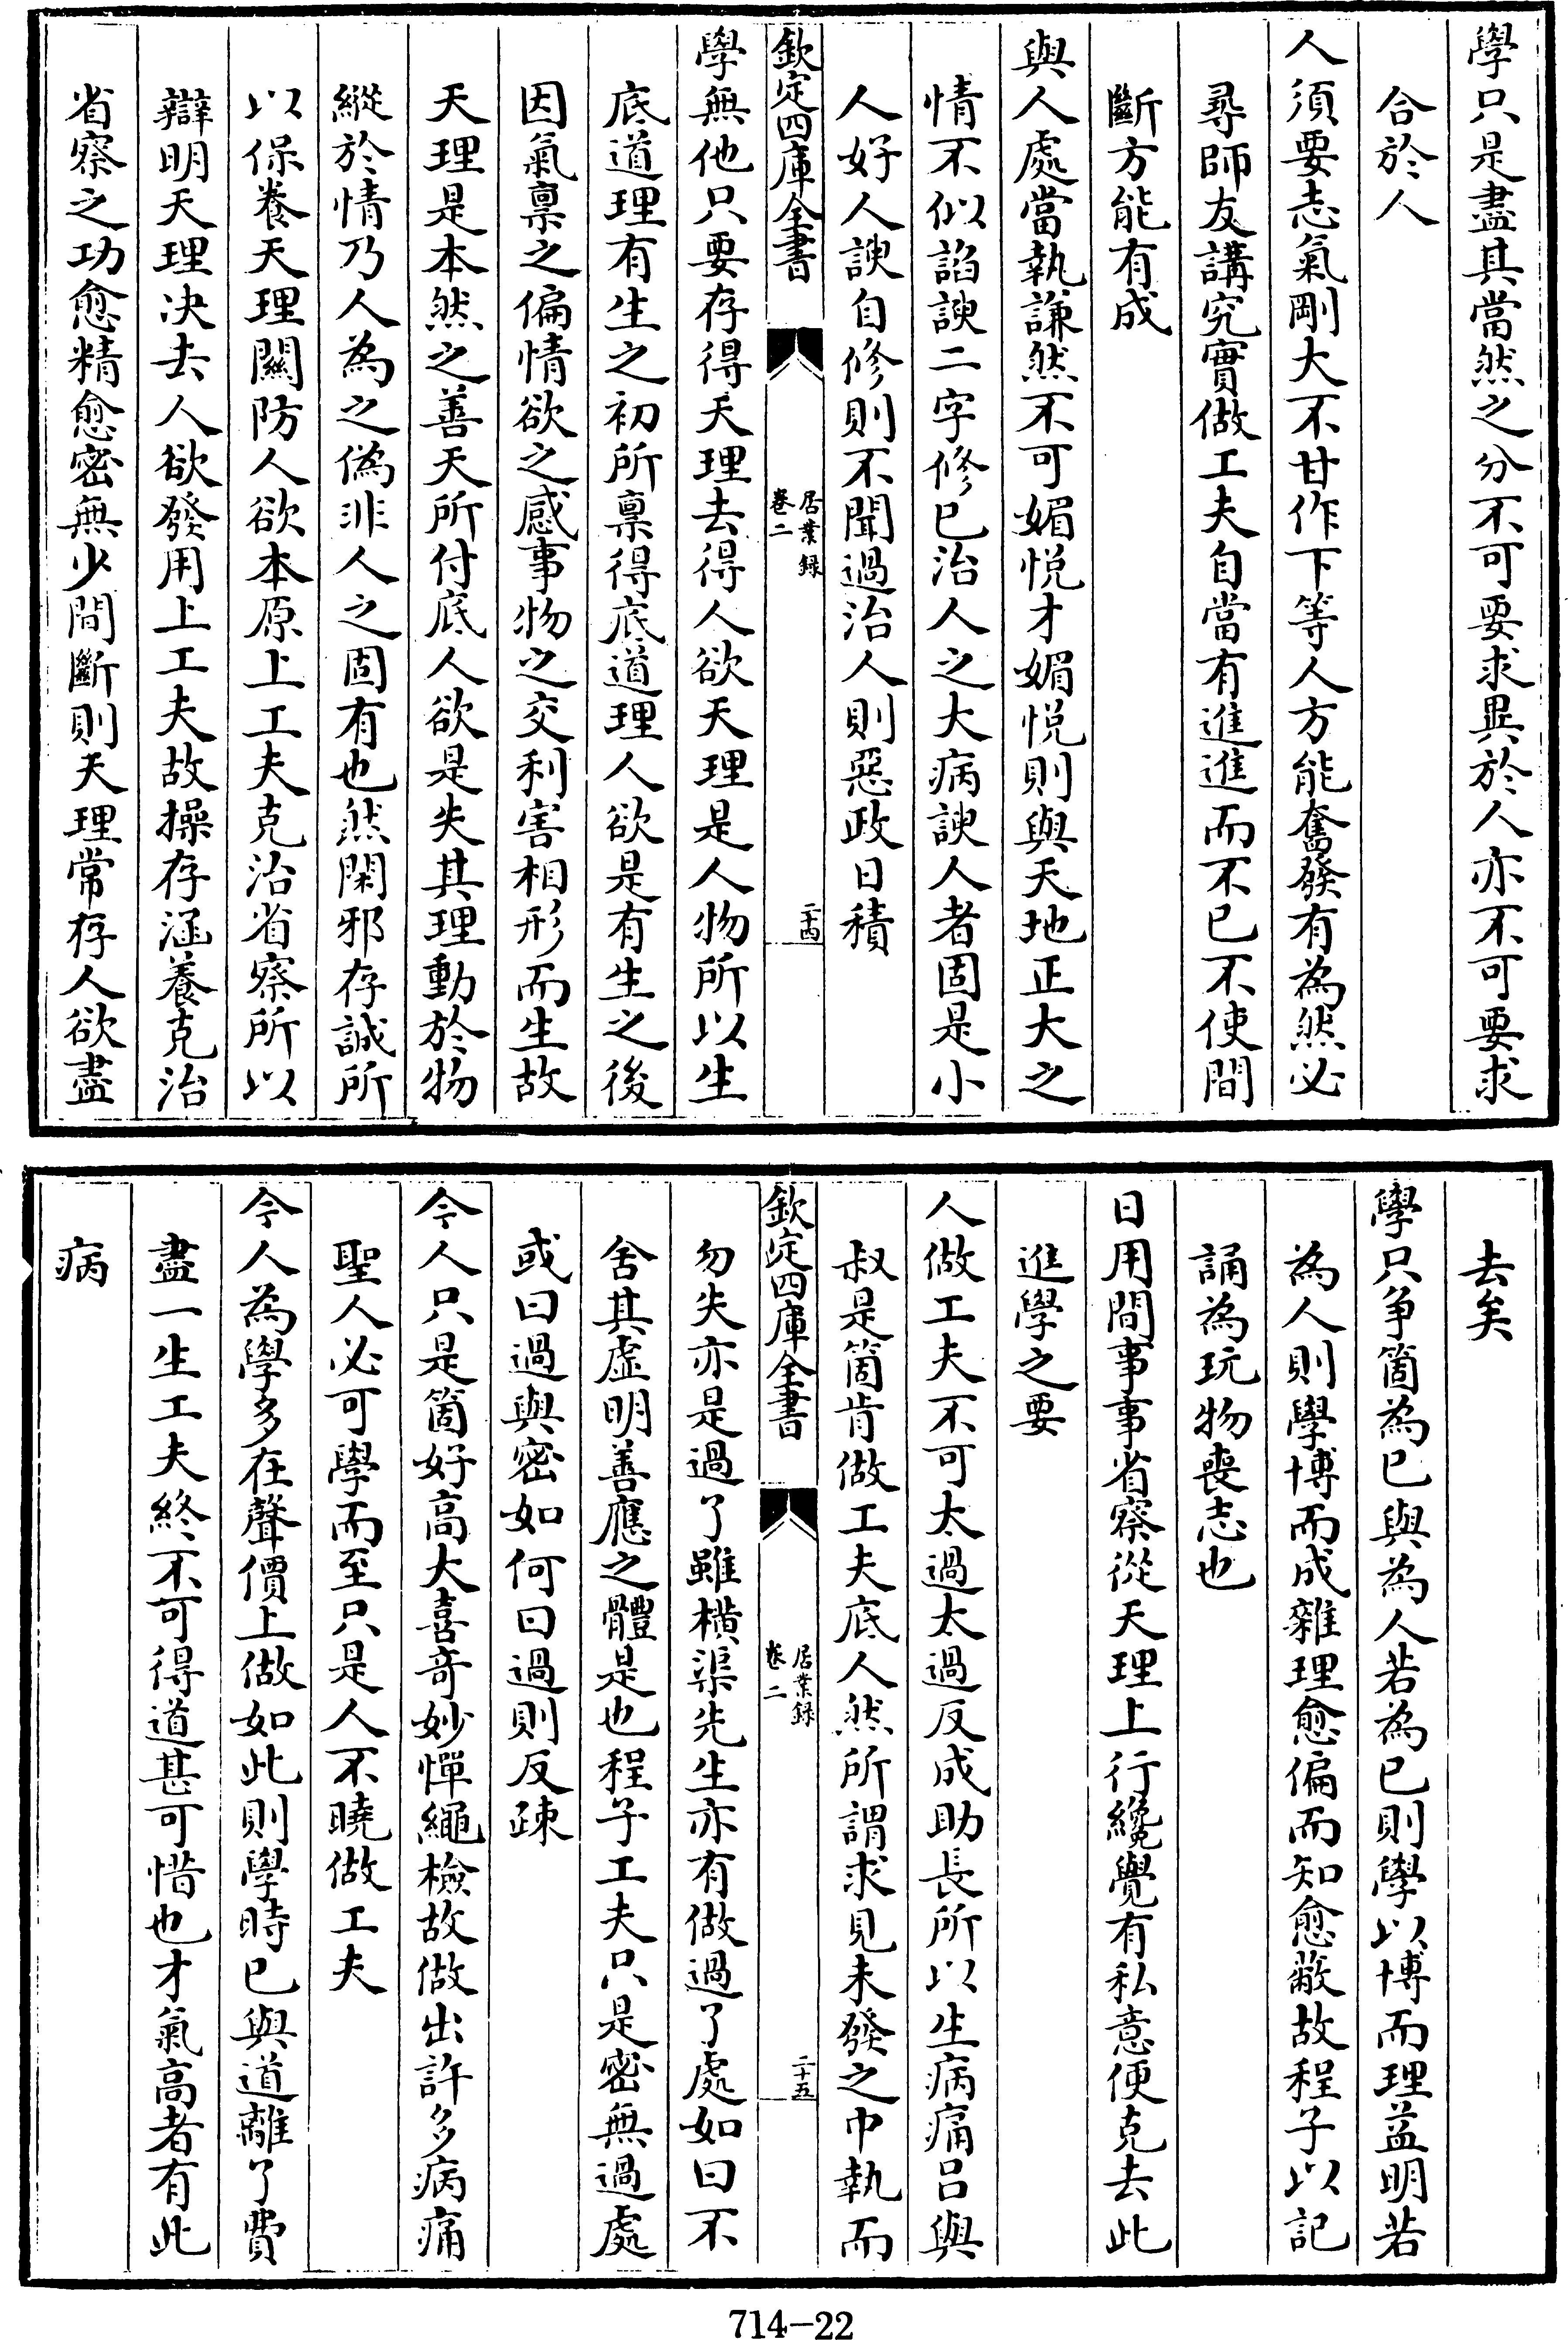 學只是盡其當然之分不可要求異於人亦不可要求
合於人
人須要志氣剛大不甘作下等人方能奮發有為然必
尋師友講究實做工夫自當有進進而不已不使間
斷方能有成
與人處當執謙然不可媚悦才媚悦則與天地正大之
情不似諂諛二字修已治人之大病諛人者固是小
人好人諛自修則不聞過治人則惡政日積
欽定四庫全書
居業録
卷二
二十四
學無他只要存得天理去得人欲天理是人物所以生
底道理有生之初所禀得底道理人欲是有生之後
因氣禀之偏情欲之感事物之交利害相形而生故
天理是本然之善天所付底人欲是失其理動於物
縱於情乃人為之偽非人之固有也然閑邪存誠所
以保養天理關防人欲本原上工夫克治省察所以
辯明天理决去人欲發用上工夫故操存涵養克治
省察之功愈精愈密無少間斷則天理常存人欲盡
去矣
學只争箇為已與為人若為已則學以博而理益明若
為人則學博而成雜理愈偏而知愈蔽故程子以記
誦為玩物喪志也
日用間事事省察從天理上行纔覺有私意便克去此
進學之要
人做工夫不可太過太過反成助長所以生病痛吕與
叔是箇肯做工夫底人然所謂求見未發之中執而
欽定四庫全書
居業録
卷二
二十五
勿失亦是過了雖横渠先生亦有做過了處如曰不
舍其虚明善應之體是也程子工夫只是密無過處
或曰過與密如何曰過則反疎
今人只是箇好高大喜奇妙憚繩檢故做出許多病痛
聖人必可學而至只是人不曉做工夫
今人為學多在聲價上做如此則學時已與道離了費
盡一生工夫終不可得道甚可惜也才氣高者有此
病
714-22